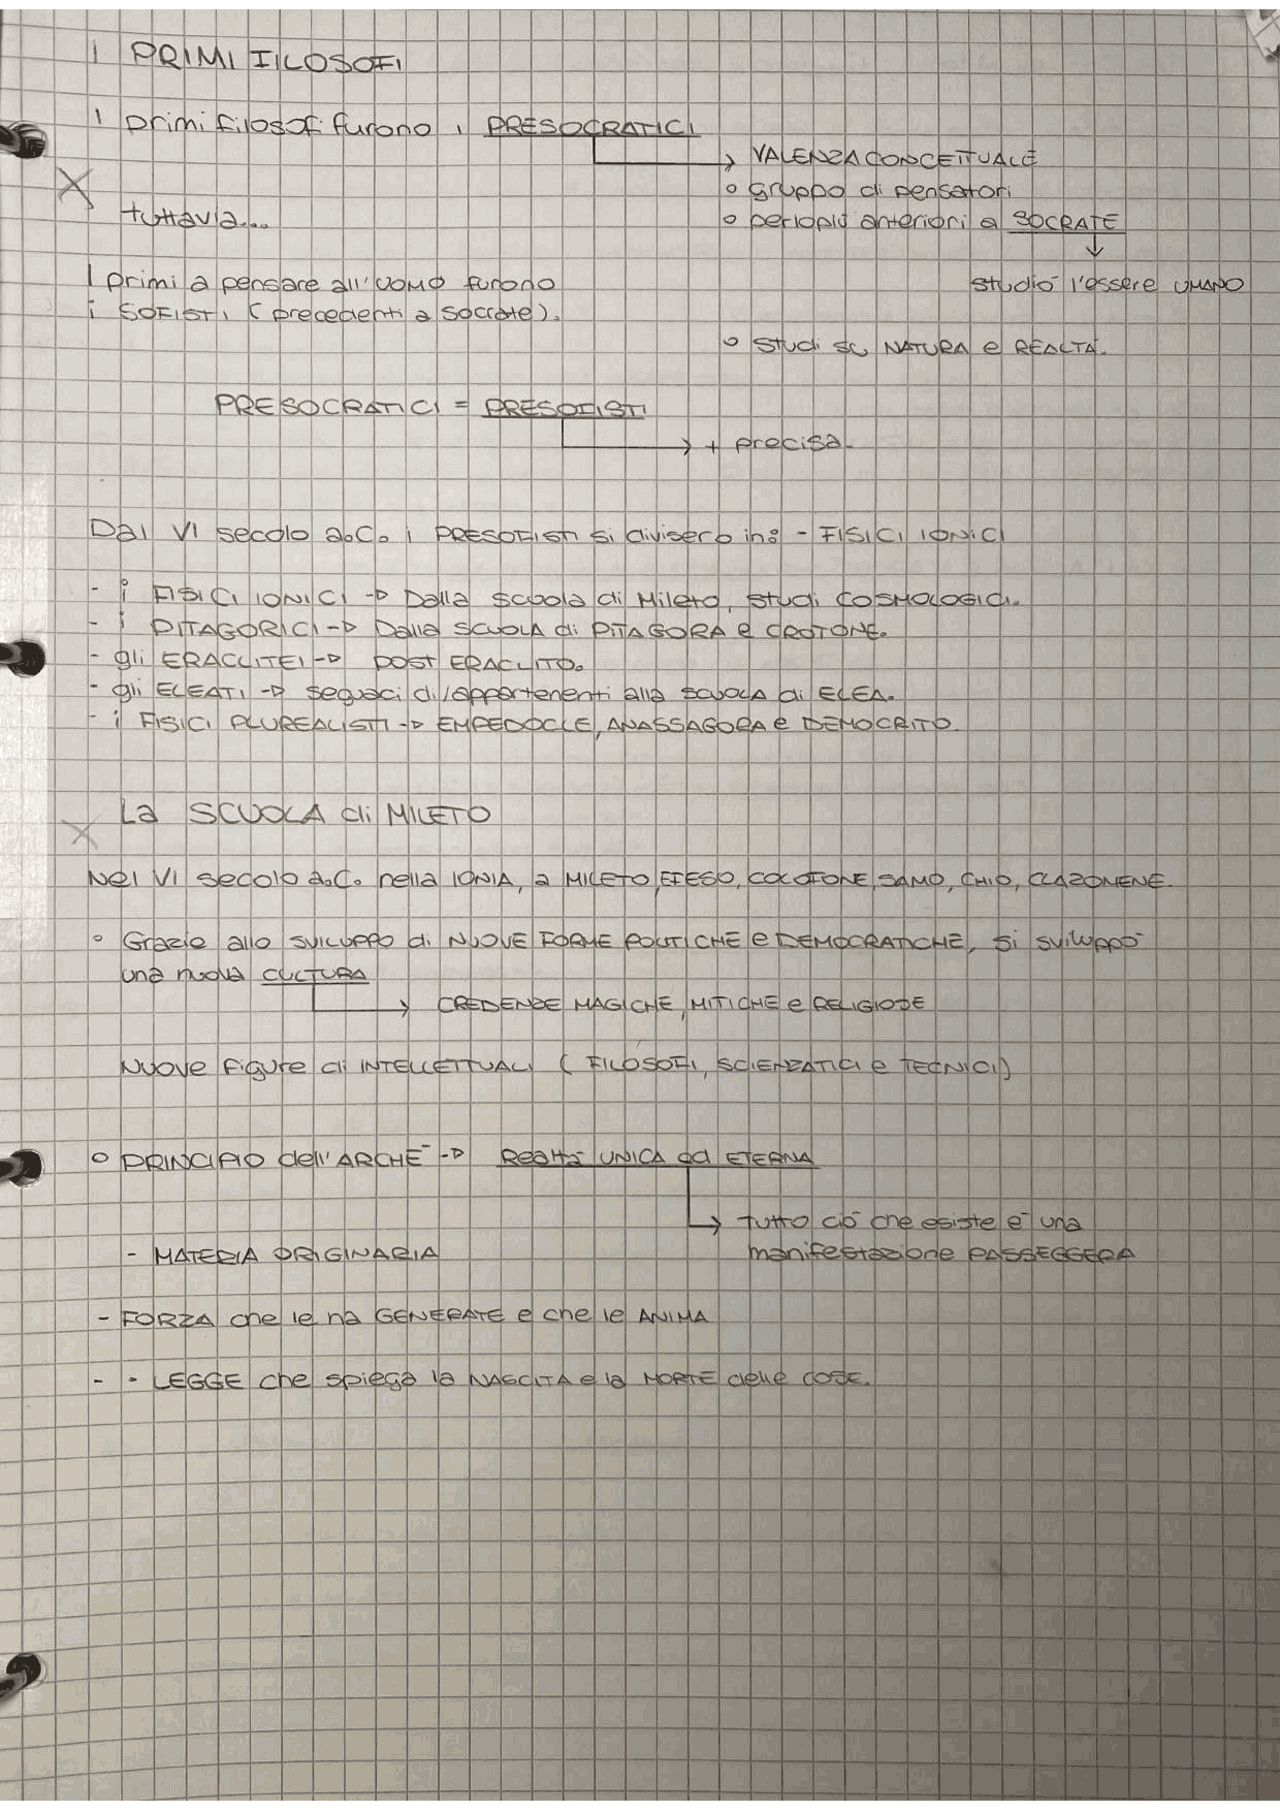 I PRIMI FILOSOFI
I primi filosofi furono i PRESOCRATICI
→ VALENZA CONCETTUALE
° gruppo di pensatori
tuttavia...
° periopid anteriori a SOCRATE
↓
I primi a pensare all'UOMO furono
studiò l'essere UMANO
i SOFISTI (precedenti a Socrate).
° Studi su NATURA e REALTÀ.
PRESOCRATICI = PRESOFISTI
→ + precisa.
Dal VI secolo a.C. i PRESOFISTI si divisero in: - FISICI IONICI
- i FISICI IONICI -> Dalla scuola di Mileto, studi COSMOLOGICI.
- i PITAGORICI -> Dalla SCUOLA di PITAGORA e CROTONE.
- gli ERACLITEI -> POST ERACLITO.
- gli ELEATI -> seguaci di/appartenenti alla SCUOLA di ELEA.
- i FISICI PLUREALISTI -> EMPEDOCLE, ANASSAGORA e DEMOCRITO.
La SCUOLA di MILETO
Nel VI secolo a.C. nella IONIA, a MILETO, EFESO, COLOFONE, SAMO, CHIO, CLAZOMENE.
° Grazie allo SVILUPPO di NUOVE FORME POLITICHE e DEMOCRATICHE, si sviluppò
una nuova CULTURA
→ CREDENZE MAGICHE, MITICHE e RELIGIOSE
NUOVE figure di INTELLETTUALI (FILOSOFI, SCIENZATICI e TECNICI)
° PRINCIPIO dell'ARCHÈ -> Realtà UNICA ed ETERNA
→ tutto ciò che esiste è una
- MATERIA ORIGINARIA
manifestazione PASSEGGERA
- FORZA che le ha GENERATE e che le ANIMA
- - LEGGE che spiega la NASCITA e la MORTE delle COSE.